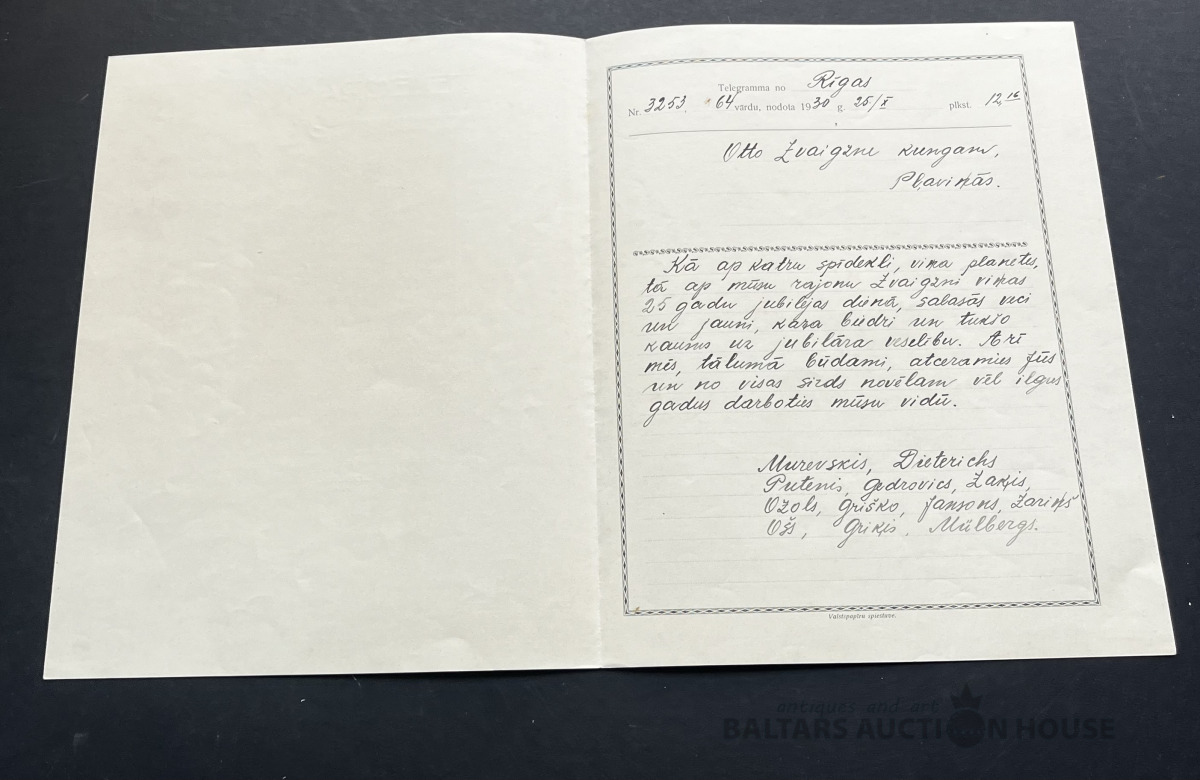 Telegramma no Rīgas
Nr. 3253. 64 vārdu, nodota 1930 g. 25/X plkst. 12,16
Otto Zvaigzne kungam,
Pļaviņās.
Kā ap katru spīdekli, viņa planetes,
tā ap mūsu rajonu Zvaigzni viņas
25 gadu jubilejas dienā, salasās veci
un jauni, kāza būdri un tukšo
kausus uz jubilāra veselību. Arī
mēs, tālumā būdami, atceramies Jūs
un no visas sirds novēlam vēl ilgus
gadus darboties mūsu vidū.
Murevskis, Dieterichs
Putenis, Gedrovics, Zaķis,
Ozols, Griško, Jansons, Zariņš
Ošs, Griķis, Mülbergs.
Valstspapīru spiestuve.
antiques and art
BALTARS AUCTION HOUSE